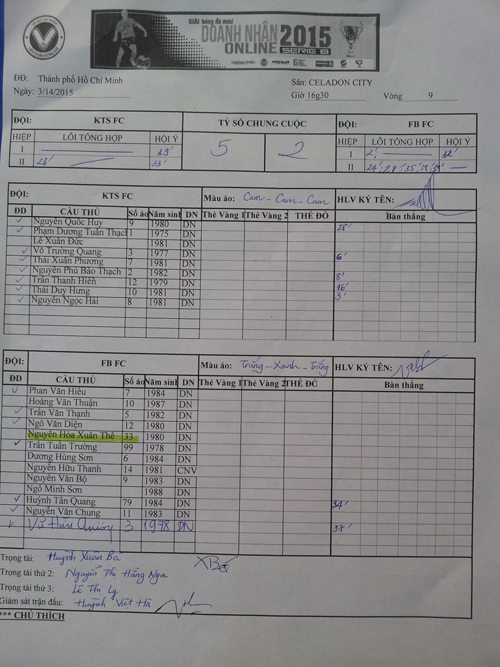 GIẢI bóng đá mini
DOANH NHÂN 2015
ONLINE SERIE B
ĐĐ: Thành phố Hồ Chí Minh Sân: CELADON CITY
Ngày: 3/14/2015 Giờ 16g30 Vòng 9
ĐỘI: KTS FC TỶ SỐ CHUNG CUỘC ĐỘI: FB FC
HIỆP LỖI TỔNG HỢP HỘI Ý 5 2 HIỆP LỖI TỔNG HỢP HỘI Ý
I 19' I 2' 12'
II 26' 33' II
ĐỘI: KTS FC Màu áo: Cam - Cam - Cam HLV KÝ TÊN:
ĐD CẦU THỦ Số áo Năm sinh DN Thẻ Vàng 1 Thẻ Vàng 2 THẺ ĐỎ Bàn thắng
Nguyễn Quốc Huy 9 1980 DN 28'
Phạm Dương Tuấn Thạch 1 1975 DN
Lê Xuân Đức 1981 DN
Võ Trường Quang 3 1977 DN 6'
Thái Xuân Phương 7 1981 DN
Nguyễn Phú Bảo Thạch 2 1982 DN 8'
Trần Thanh Hiền 12 1979 DN 16'
Thái Duy Hưng 10 1981 DN 3'
Nguyễn Ngọc Hải 8 1981 DN
ĐỘI: FB FC Màu áo: Trắng - Xanh - Trắng HLV KÝ TÊN:
ĐD CẦU THỦ Số áo Năm sinh DN Thẻ Vàng 1 Thẻ Vàng 2 THẺ ĐỎ Bàn thắng
Phan Văn Hiếu 7 1984 DN
Hoàng Văn Thuận 10 1987 DN
Trần Văn Thạnh 5 1982 DN
Ngô Văn Diện 12 1980 DN
Nguyễn Hòa Xuân Thế 33 1980 DN
Trần Tuấn Trường 99 1978 DN
Dương Hùng Sơn 6 1984 DN
Nguyễn Hữu Thanh 14 1981 CNV
Nguyễn Văn Bộ 9 1983 DN
Ngô Minh Sơn 1988 DN
Huỳnh Tấn Quang 79 1984 DN 34'
Nguyễn Văn Chung 11 1983 DN
Vũ Hữu 3 1978 DN 37'
Trọng tài: Huỳnh Xuân Ba
Trọng tài thứ 2: Nguyễn Thị Hằng Nga
Trọng tài thứ 3: Lê Thị Ly
Giám sát trận đấu: Huỳnh Viết Hà
*** CHÚ THÍCH